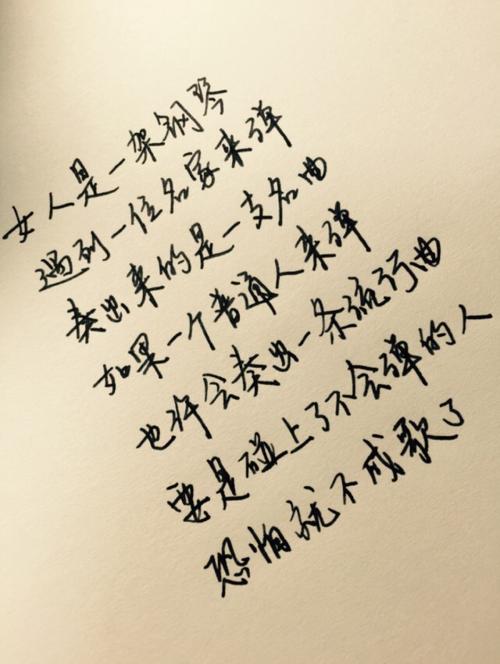 女人是一架钢琴
遇到一位名家来弹
奏出来的是一支名曲
如果一个普通人来弹
也许会奏出一条流行曲
要是碰上了不会弹的人
恐怕就不成歌了